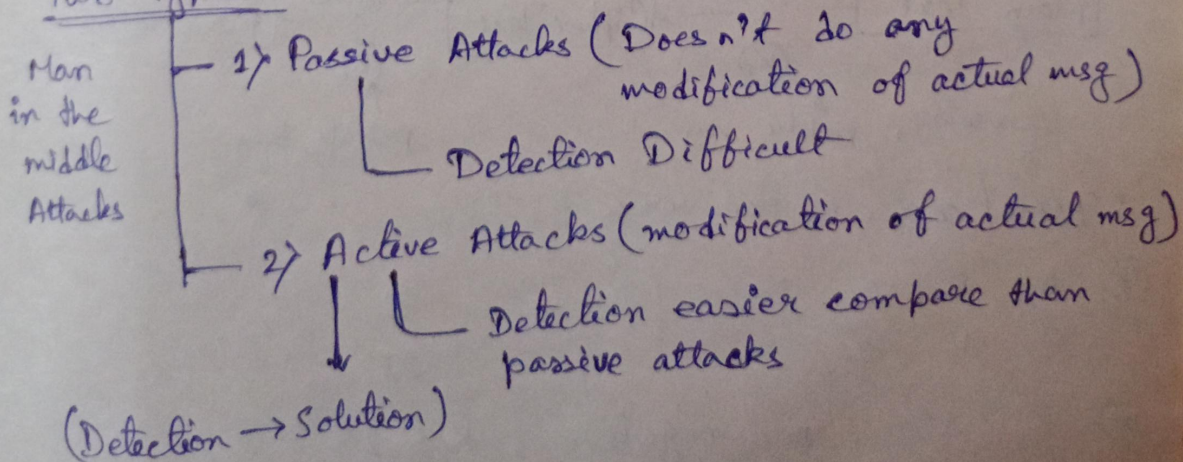 Man
in the
middle
Attacks
1) Passive Attacks (Doesn't do any
modification of actual msg)
Detection Difficult
2) Active Attacks (modification of actual msg)
Detection easier compare than
passive attacks
(Detection → Solution)